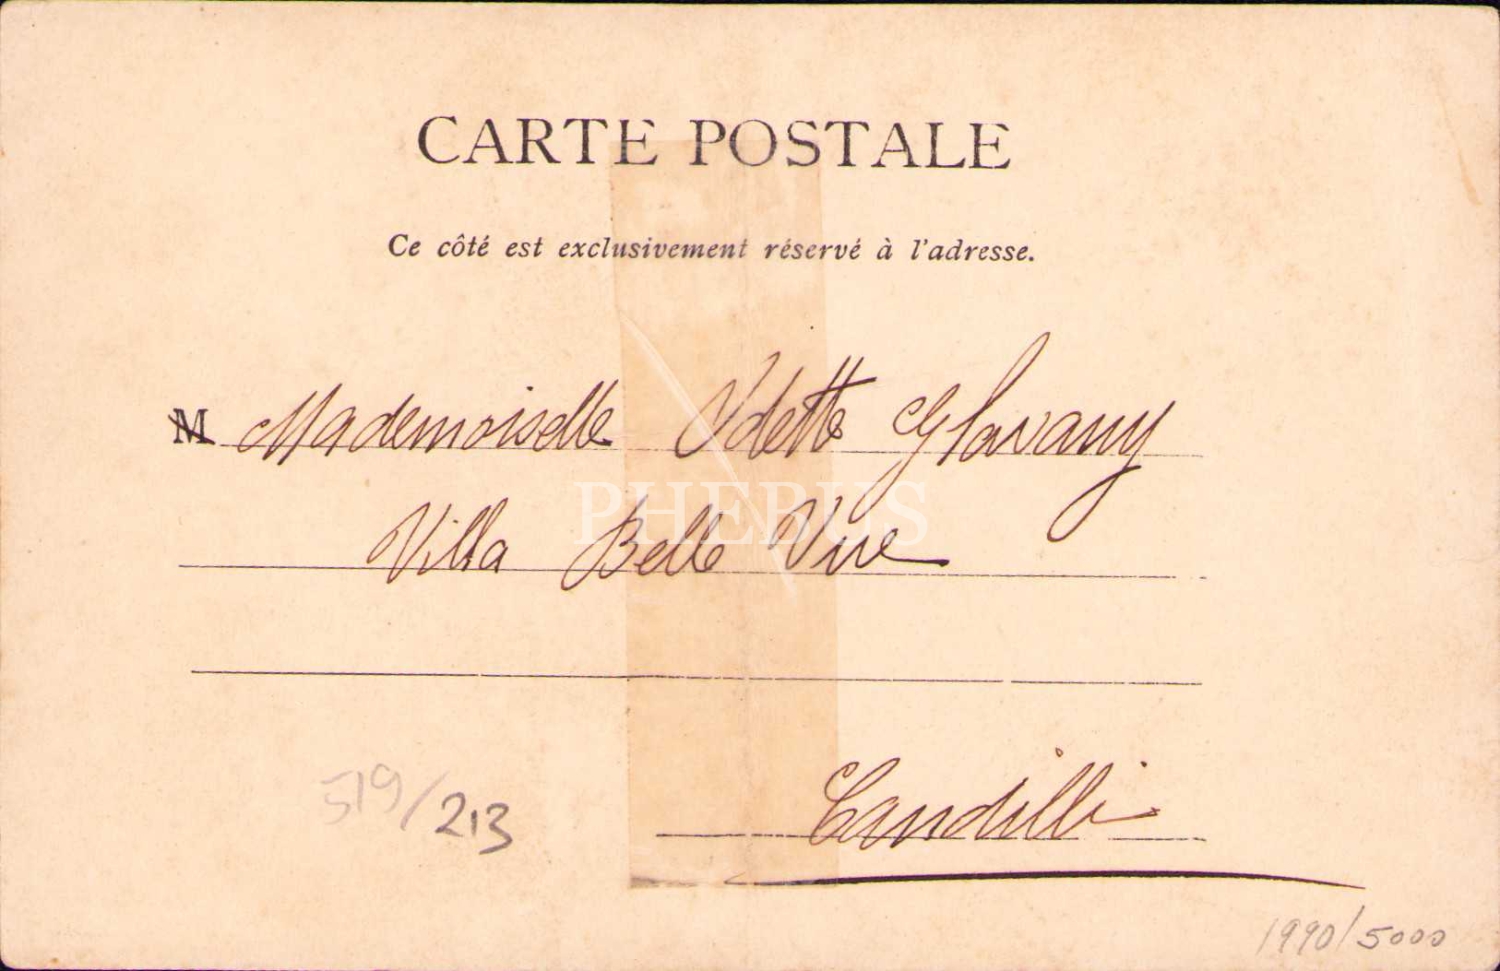 CARTE POSTALE
Ce côté est exclusivement réservé à l'adresse.
M Mademoiselle Odette Glavany
Villa Belle Vue
PHEBUS
Candilli
519/213
1990/5000